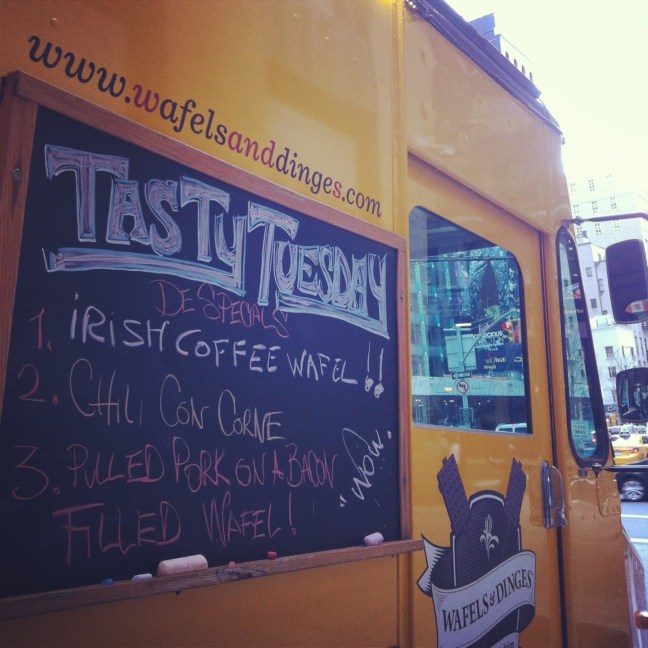 www.wafelsanddinges.com
TASTY TUESDAY
DE SPECIALS
1. IRISH COFFEE WAFEL!!
2. CHILI CON CORNE
3. PULLED PORK ON A BACON
FILLED WAFEL!
"WOW.
WAFELS & DINGES